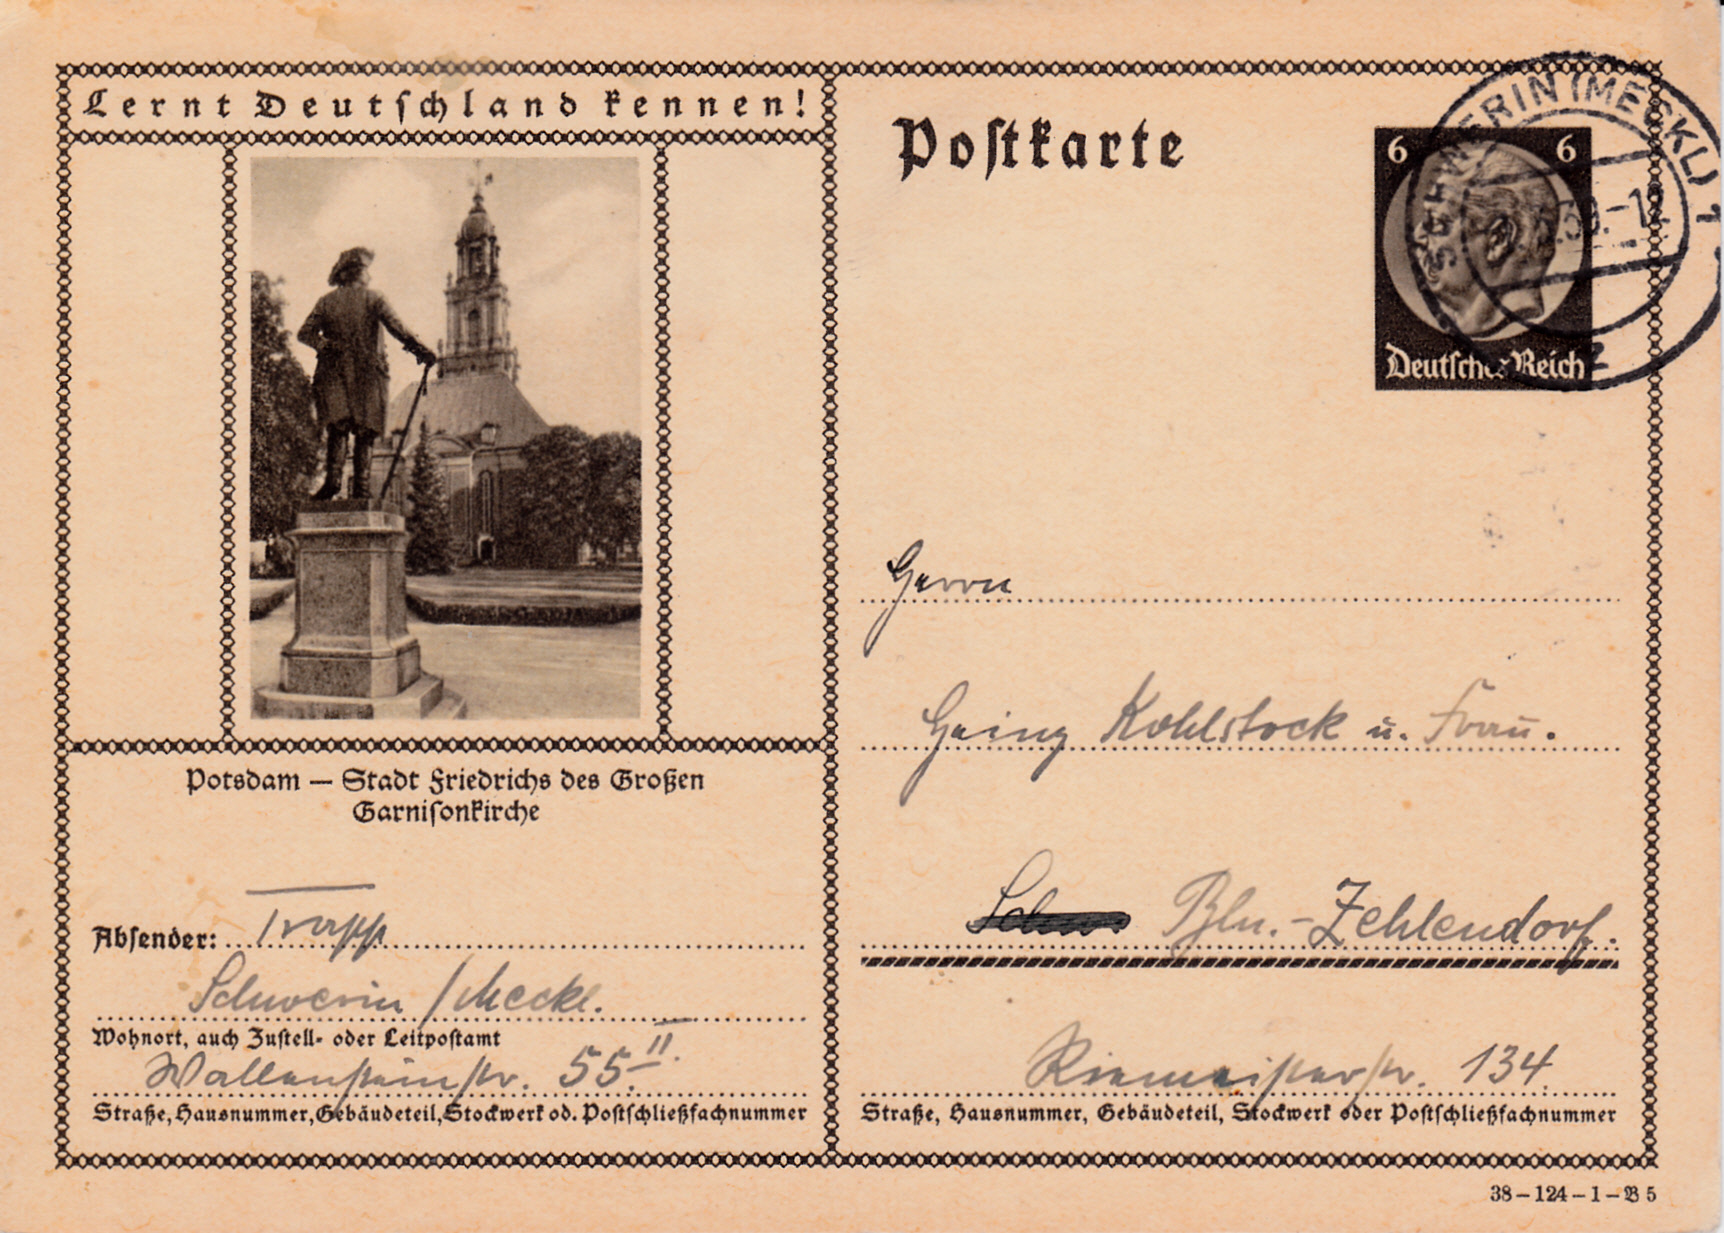 Lernt Deutschland kennen!
Postkarte
6 6
Deutsches Reich
SCHWERIN (MECKL) 1
Potsdam — Stadt Friedrichs des Großen
Garnisonkirche
Absender: Trapp
Schwerin / Meckl.
Wohnort, auch Zustell- oder Leitpostamt
Wallensteinstr. 55. II.
Straße, Hausnummer, Gebäudeteil, Stockwerk od. Postschließfachnummer
Herrn
Heinz Kohlstock u. Frau.
Bln.-Zehlendorf.
Riemeisterstr. 134.
Straße, Hausnummer, Gebäudeteil, Stockwerk oder Postschließfachnummer
38–124–1–B 5